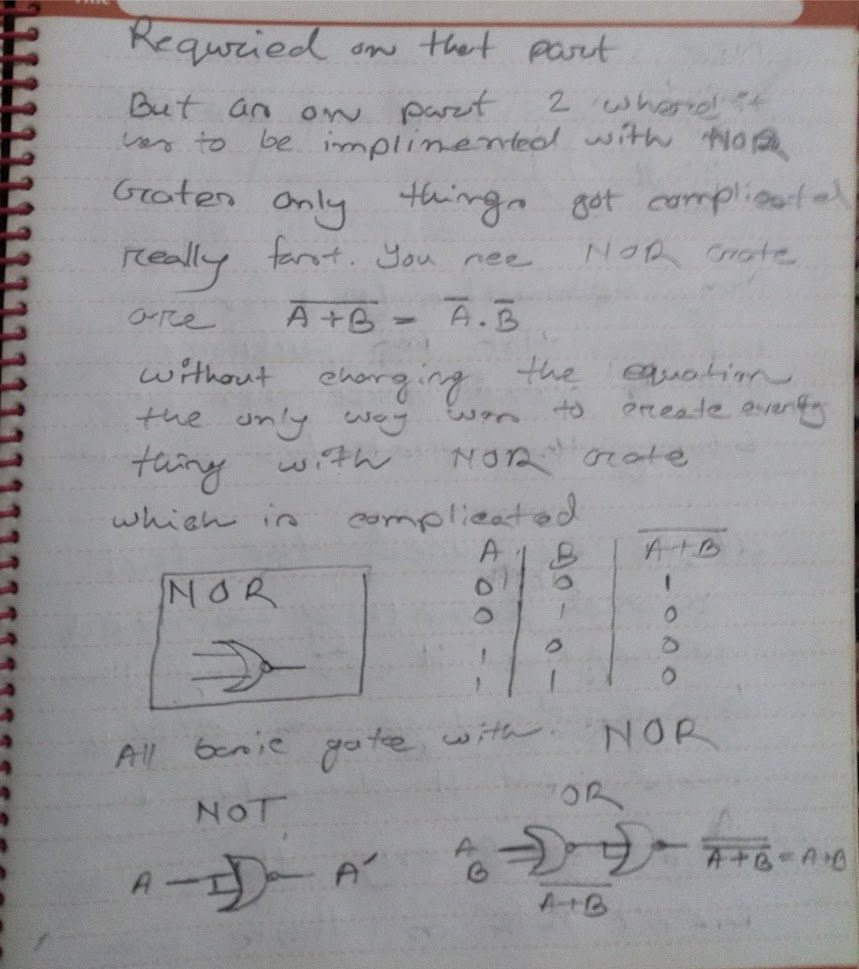 Requried on that part
But an on part 2 where it
was to be implimented with NOR
Gates only things got complicated
really fast. You see NOR Gate
are A̅+̅B̅ = A̅.B̅
without changing the equation
the only way was to create every
thing with NOR Gate
which is complicated
A B A̅+̅B̅
NOR 0 0 1
0 1 0
1 0 0
1 1 0
All basic gate with NOR
NOT OR
A A' A B A̅+̅B̅ A̿+̿B̿ = A+B